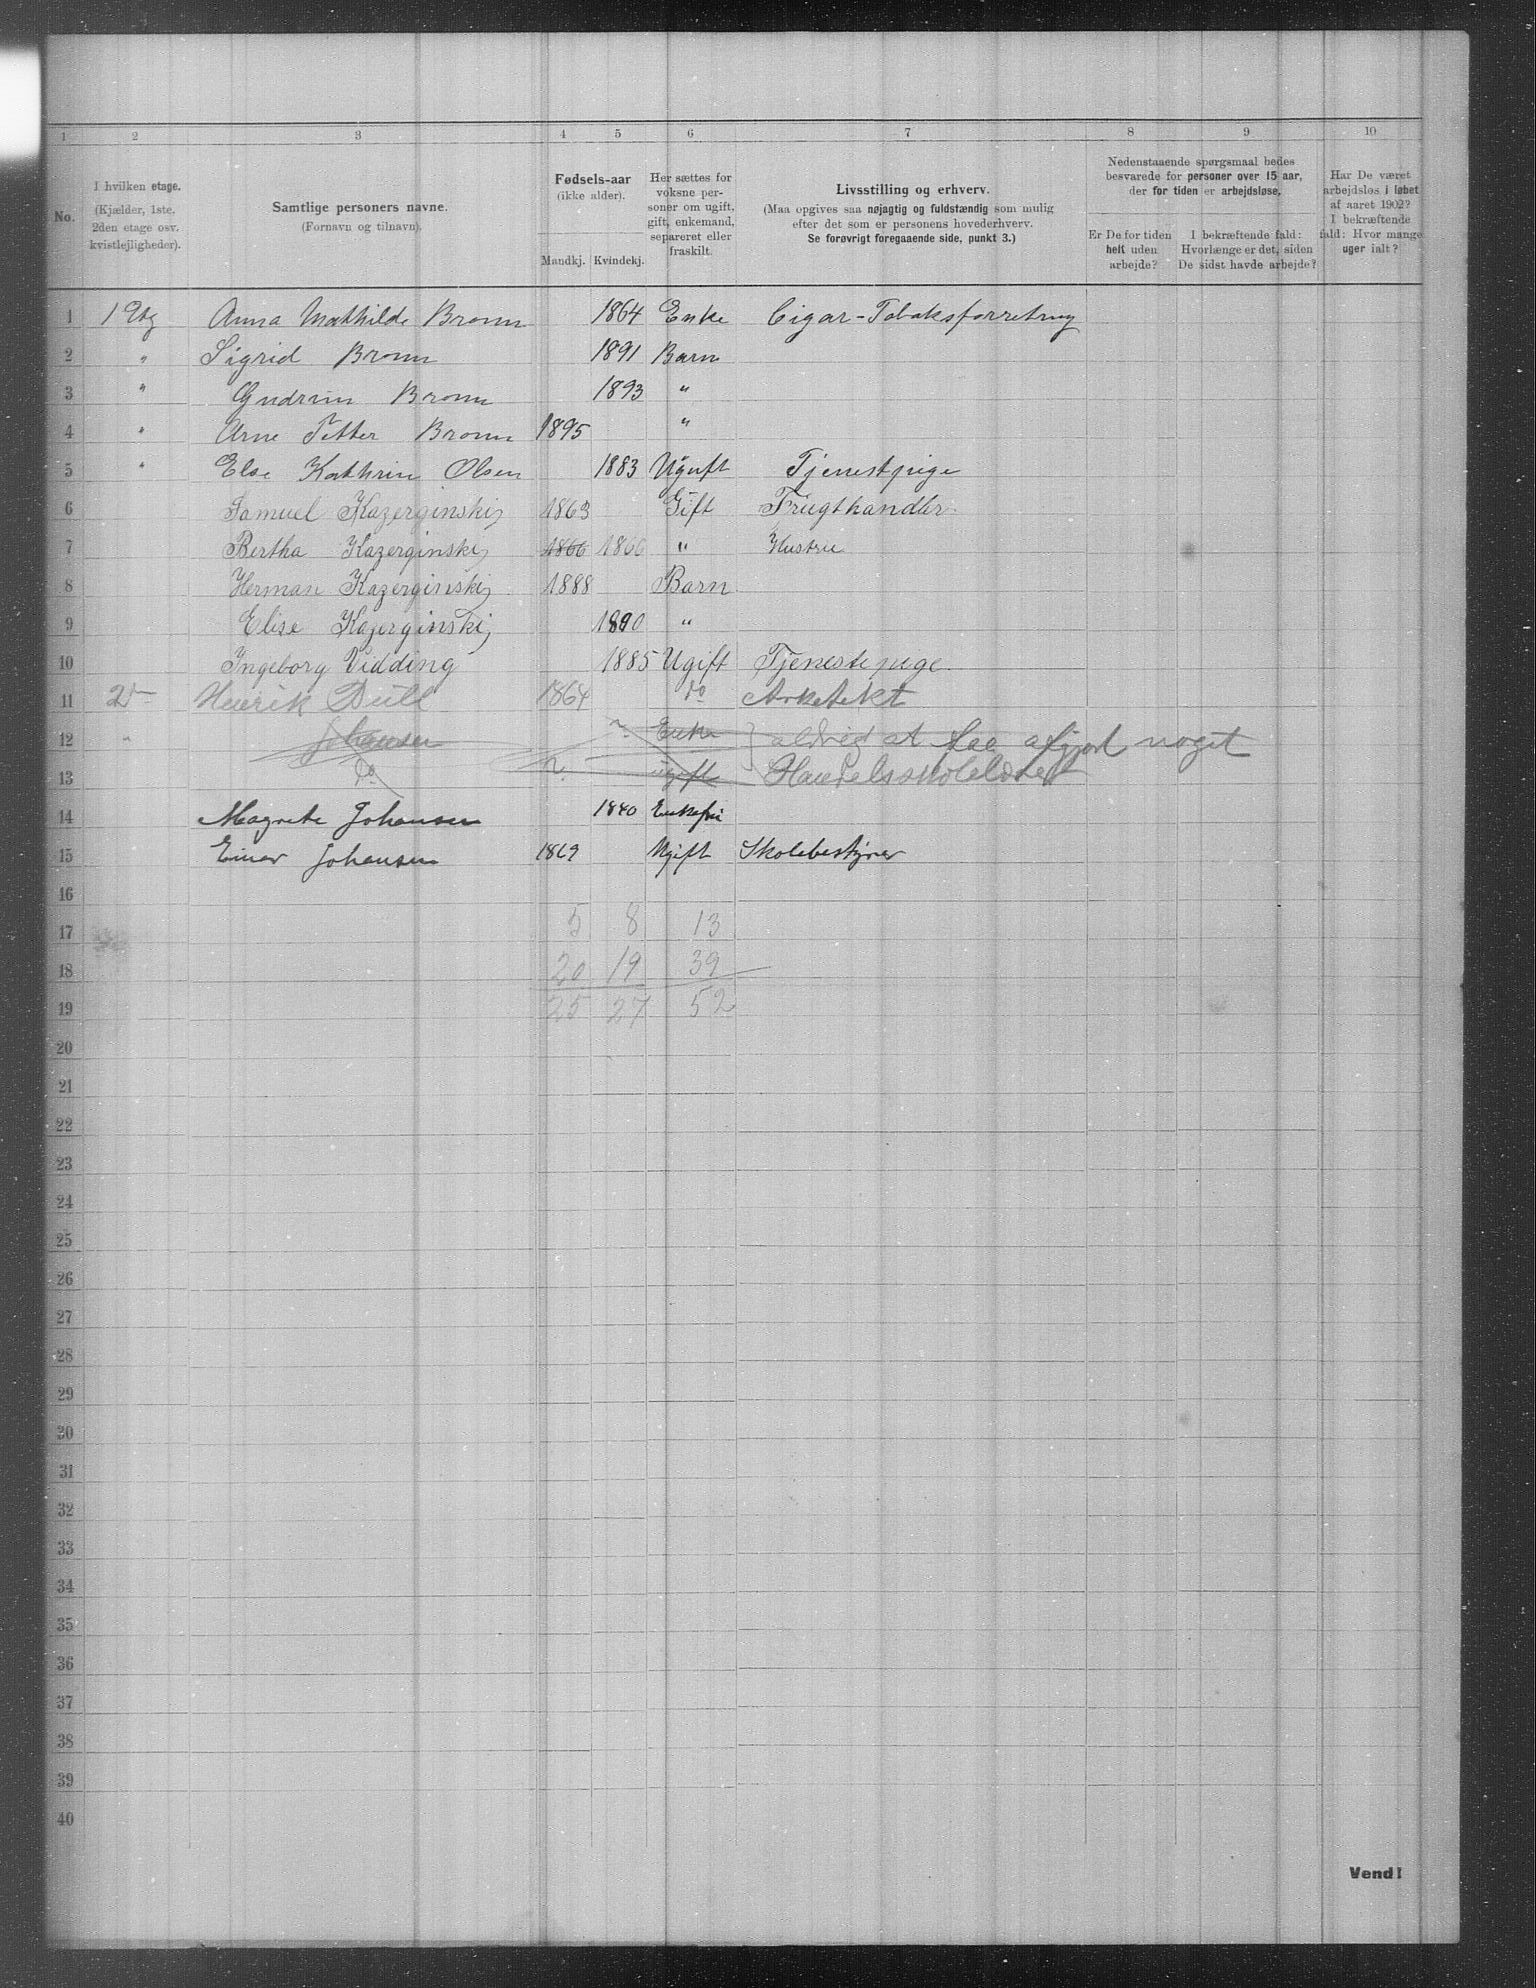 1 2 3 4 5 6 7 8 9 10
No.
I hvilken etage.
(Kjælder, 1ste,
2den etage osv.
kvistlejligheder).
Samtlige personers navne.
(Fornavn og tilnavn).
Fødsels-aar
(ikke alder).
Mandkj. Kvindekj.
Her sættes for
voksne per-
soner om ugift,
gift, enkemand,
separeret eller
fraskilt.
Livsstilling og erhverv.
(Maa opgives saa nøjagtig og fuldstændig som mulig
efter det som er personens hovederhverv.
Se forøvrigt foregaaende side, punkt 3.)
Nedenstaaende spørgsmaal bedes
besvarede for personer over 15 aar,
der for tiden er arbejdsløse.
Er De for tiden
helt uden
arbejde?
I bekræftende fald:
Hvorlænge er det, siden
De sidst havde arbejde?
Har De været
arbejdsløs i løbet
af aaret 1902?
I bekræftende
fald: Hvor mange
uger ialt?
1 1 Etg Anna Mathilde Bronn 1864 Enke Cigar-Tobaksforretning
2 " Sigrid Bronn 1891 Barn
3 " Gudrun Bronn 1893 "
4 " Arne Petter Bronn 1895 "
5 " Else Kathrin Olsen 1883 Uguft Tjenestpige
6 Samuel Kazerginski 1863 Gift Frugthandler
7 Bertha Kazerginski 1866 1866 " Hustru
8 Herman Kazerginski 1888 Barn
9 Elise Kazerginski 1890 "
10 Ingeborg Vidding 1885 Ugift Tjenestepige
11 Henrik 1864 do Arketekt
12 " Johansen Enke aldrig at faa afgjort noget
13 Do ugift Handelsskolelærer
14 Magrete Johansen 1840 Enkefru
15 Einar Johansen 1869 Ugift Skolebestyrer
16
17 5 8 13
18 20 19 39
19 25 27 52
20
21
22
23
24
25
26
27
28
29
30
31
32
33
34
35
36
37
38
39
40
Vend!